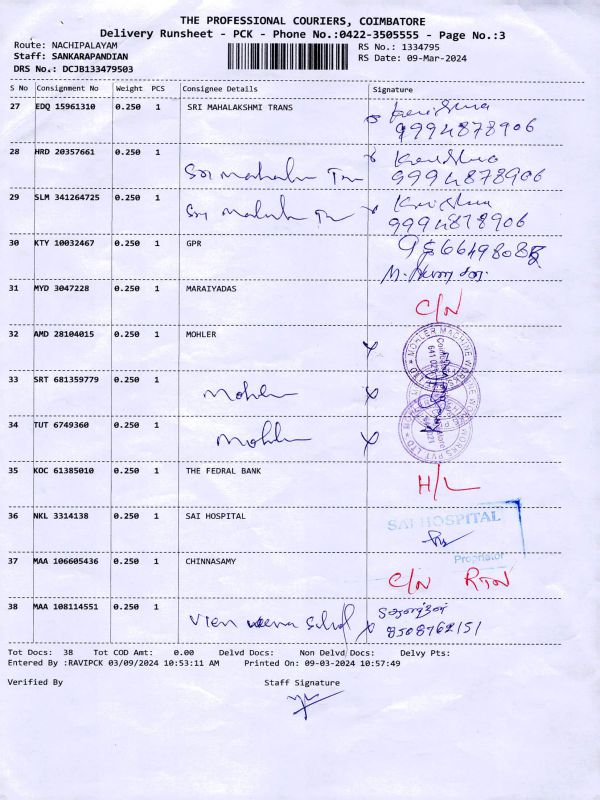 THE PROFESSIONAL COURIERS, COIMBATORE
Delivery Runsheet - PCK - Phone No.:0422-3505555 - Page No.:3
Route: NACHIPALAYAM
RS No.: 1334795
Staff: SANKARAPANDIAN
RS Date: 09-Mar-2024
DRS No.: DCJB133479503
S No Consignment No Weight PCS Consignee Details Signature
27 EDQ 15961310 0.250 1 SRI MAHALAKSHMI TRANS
9994878906
28 HRD 20357661 0.250 1
Sri
9994878906
29 SLM 341264725 0.250 1
Sri
9994878906
30 KTY 10032467 0.250 1 GPR
31 MYD 3047228 0.250 1 MARAIYADAS
C/N
32 AMD 28104015 0.250 1 MOHLER
33 SRT 681359779 0.250 1 Mohler
34 TUT 6749360 0.250 1 Mohler
35 KOC 61385010 0.250 1 THE FEDRAL BANK
H/L
36 NKL 3314138 0.250 1 SAI HOSPITAL
SAI HOSPITAL
Proprietor
37 MAA 106605436 0.250 1 CHINNASAMY
C/N RTN
38 MAA 108114551 0.250 1
Tot Docs: 38 Tot COD Amt: 0.00 Delvd Docs: Non Delvd Docs: Delvy Pts:
Entered By :RAVIPCK 03/09/2024 10:53:11 AM Printed On: 09-03-2024 10:57:49
Verified By Staff Signature